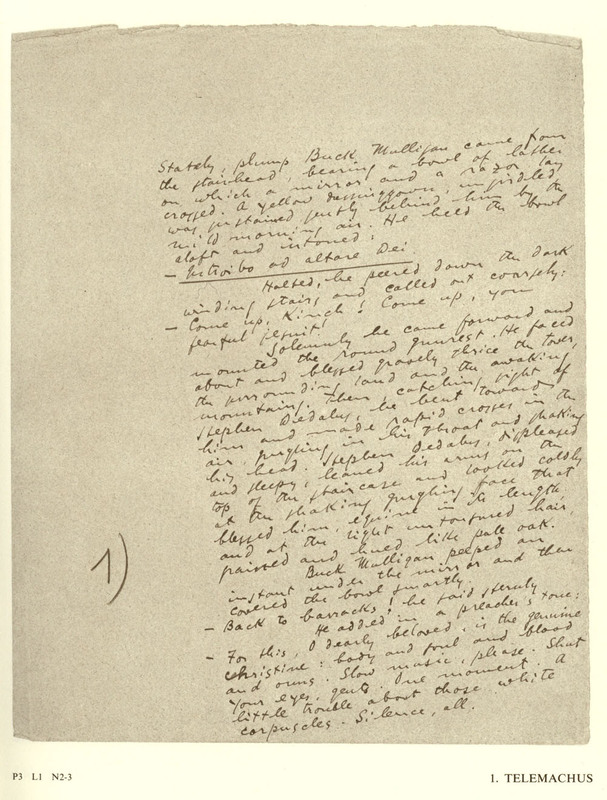 Stately, plump Buck Mulligan came from
the stairhead, bearing a bowl of lather
on which a mirror and a razor lay
crossed. A yellow dressinggown, ungirdled,
was sustained gently behind him by the
mild morning air. He held the bowl
aloft and intoned:
— Introibo ad altare Dei
Halted, he peered down the dark
winding stairs and called out coarsely:
— Come up, Kinch! Come up, you
fearful jesuit!
Solemnly he came forward and
mounted the round gunrest. He faced
about and blessed gravely thrice the tower,
the surrounding land and the awaking
mountains. Then, catching sight of
Stephen Dedalus, he bent towards
him and made rapid crosses in the
air, gurgling in his throat and shaking
his head. Stephen Dedalus, displeased
and sleepy, leaned his arms on the
top of the staircase and looked coldly
at the shaking gurgling face that
blessed him, equine in its length,
and at the light untonsured hair,
grained and hued like pale oak.
Buck Mulligan peeped an
instant under the mirror and then
covered the bowl smartly.
— Back to barracks! he said sternly.
He added in a preacher's tone:
— For this, O dearly beloved, is the genuine
christine: body and soul and blood
and ouns. Slow music, please. Shut
your eyes, gents. One moment. A
little trouble about those white
corpuscles. Silence, all.
1)
P3 L1 N2-3
1. TELEMACHUS